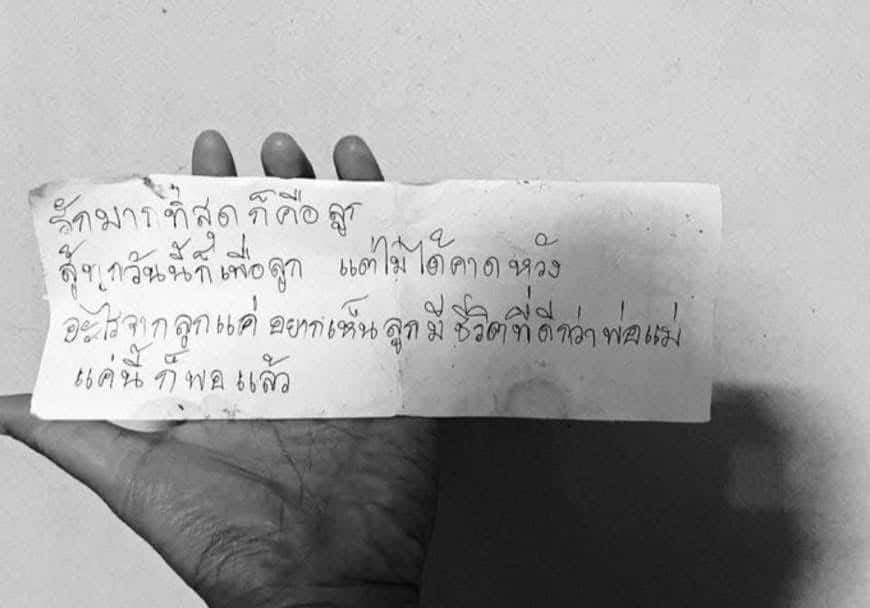 รักมากที่สุด ก็คือ ลูก
สู้ทุกวันนี้ก็เพื่อลูก แต่ไม่ได้คาดหวัง
อะไรจากลูกแค่ อยากเห็นลูกมีชีวิตที่ดีกว่าพ่อแม่
แค่นี้ ก็ พอ แล้ว